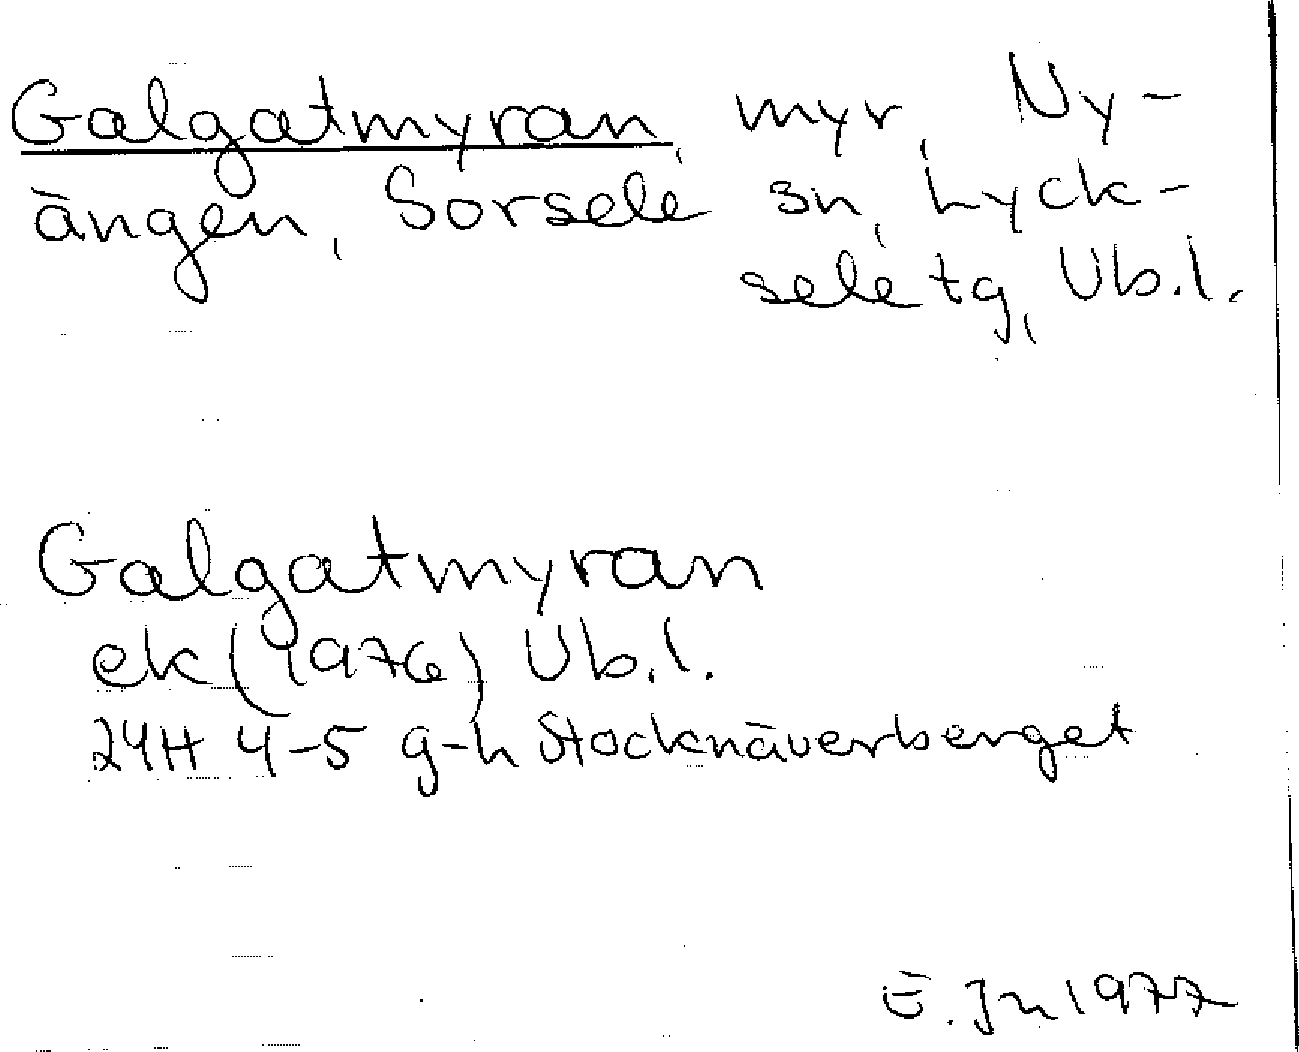 Galgatmyran, myr, Ny-
ängen, Sorsele sn, Lyck-
sele tg, Vb.l.
Galgatmyran
ek (1976) Vb.l.
24H 4-5 g-h Stocknäverberget
E. Jn 1977